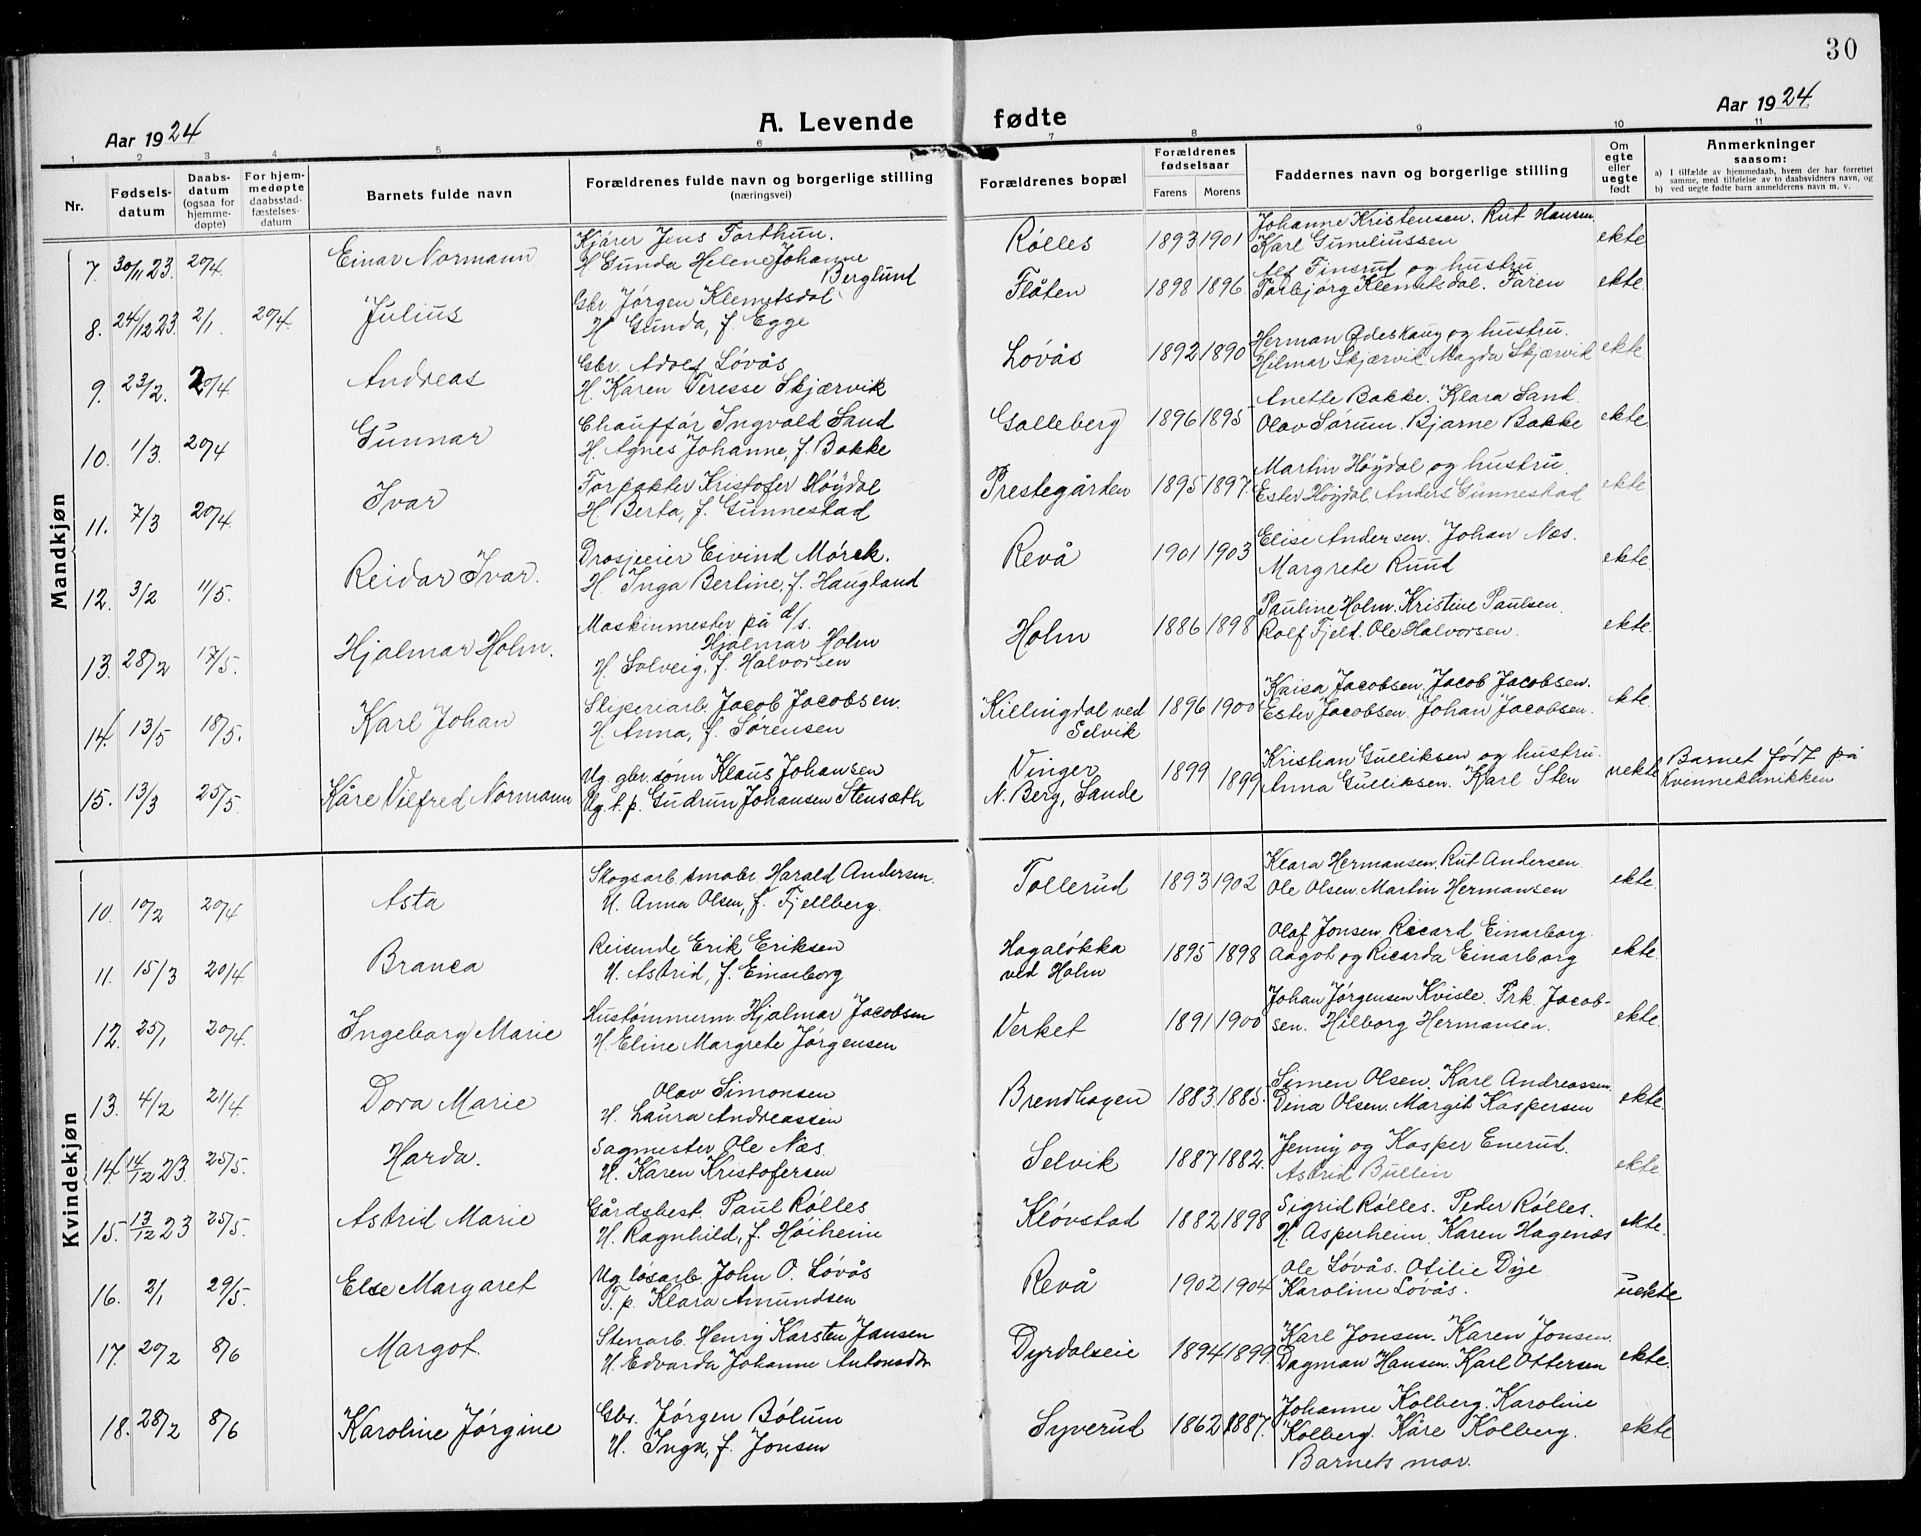 30
Aar 1924
A. Levende fødte
Aar 1924.
1 2 3 4 5 6 7 8 9 10 11
Nr.
Fødsels-
datum
Daabs-
datum
(ogsaa for
hjemme-
døpte)
For hjem-
medøpte
daabsstad-
fæstelses-
datum
Barnets fulde navn
Forældrenes fulde navn og borgerlige stilling
(næringsvei)
Forældrenes bopæl
Forældrenes
fødselsaar
Farens Morens
Faddernes navn og borgerlige stilling
Om
egte
eller
uegte
født
Anmerkninger
saasom:
a) I tilfælde av hjemmedaab, hvem der har forrettet
samme, med tilføielse av to daabsvidners navn, og
b) ved uegte fødte barn anmelderens navn m. v.
Mandkjøn
7. 30/11 23. 20/4. Einar Normann Kjører Jens Forthun. Rølles 1893 1901 Johanne Kristensen. Rut Hansen. ekte
H Gunda Helene Johanne Karl Guneliussen
Berglund
8. 24/12 23. 2/1. 20/4. Julius Gbr Jørgen Klemetsdal Flåten 1898 1896 Alf Finsrud og hustru ekte
H Gunda, f. Egge Torbjørg Klemetsdal. Faren
9. 23/2. 20/4 Andreas Gbr. Adolf Løvås Løvås 1892 1890 Herman Ødeskaug og hustru. ekte
H Karen Teresse Skjærvik Hilmar Skjærvik Magda Skjærvik
10. 1/3. 20/4 Gunnar Chauffør Ingvald Sand Galleberg 1896 1895 Anette Bakke. Klara Sand. ekte
H. Agnes Johanne, f. Bakke Olav Sørum. Bjarne Bakke
11. 7/3 20/4. Ivar Forpakter Kristofer Høydal Prestegården 1895 1897. Martin Høydal og hustru. ekte
H. Berta, f. Gunnestad Ester Høydal Anders Gunnestad
12. 3/2 11/5. Reidar Ivar. Drosjeeier Eivind Mørck. Revå 1901 1903 Elise Andersen. Johan Næs. ekte.
H. Inga Berline, f. Haugland Margrete Ruud
13. 28/2 17/5. Hjalmar Holm. Maskinmester på d/s. Holm 1886 1898 Pauline Holm. Kristine Paulsen. ekte.
Hjalmar Holm Rolf Fjeld. Ole Halvorsen.
H. Solveig, f. Halvorsen
14. 13/5 18/5. Karl Johan Sliperiarb. Jacob Jacobsen. Killingdal ved 1896 1900 Kaisa Jacobsen. Jacob Jacobsen. ekte.
H Anna, f. Sørensen Selvik Ester Jacobsen Johan Jacobsen.
15. 13/3 25/5. Kåre Vilfred Normann Ug. gbr.sønn Klaus Johansen Vinger 1899 1899 Kristian Gulliksen og hustru. uekte Barnet født på
Ug. t. p. Gudrun Johansen Stensæth N. Berg, Sande Anna Gulliksen. Karl Sten Kvinneklinikken
Kvindekjøn
10. 10/2 20/4 Asta Skogsarb. smabr Harald Andersen. Tollerud 1893 1902 Klara Hermansen. Rut Andersen ekte.
H. Anna Olsen, f. Fjellberg. Ole Olsen. Martin Hermansen
11. 15/3 20/4 Branca Reisende Erik Eriksen Hagaløkka 1895 1898 Olaf Jonsen. Ricard Einarborg. ekte.
H. Astrid, f. Einarborg ved Holm Aagot og Ricarda Einarborg
12. 25/1 20/4. Ingeborg Marie Hustømmerm. Hjalmar Jacobsen Verket 1891 1900 Johan Jørgensen Kvisle. Frk. Jacob- ekte.
H. Eline Margrete Jørgensen sen. Hilborg Hermansen.
13. 4/2 21/4 Dora Marie Olav Simonsen Brendhagen 1883. 1885. Simen Olsen. Karl Andreassen. ekte
H. Laura Andreassen Dina Olsen. Margit Kaspersen
14. 14/12 23. 25/5. Harda. Sagmester Ole Næs. Selvik 1887 1882. Jenny og Kasper Enerud. ekte
H. Karen Kristofersen Astrid Bullin
15. 13/12 23 25/5. Astrid Marie Gårdsbest. Paul Rølles Kløvstad 1882 1898 Sigrid Rølles. Peder Rølles. ekte.
H. Ragnhild, f. Høiheim H. Asperheim. Karen Hagenæs
16. 2/1 29/5. Else Margaret Ug. løsarb. John O. Løvås Revå 1902 1904 Ole Løvås. Otilie Dye uekte
T. p. Klara Amundsen Karoline Løvås.
17. 20/2 8/6 Margot. Stenarb. Henry Karsten Jansen Dyrdalseie 1894 1899. Karl Jonsen. Karen Jonsen. ekte.
H. Edvarda Johanne Antonsdtr Dagmar Hansen. Karl Ottersen
18. 28/2 8/6 Karoline Jørgine Gbr. Jørgen Bølum Syverud 1862 1887. Johanne Kolberg. Karoline ekte
H. Inga, f. Jonsen Kolberg. Kåre Kolberg.
Barnets mor.